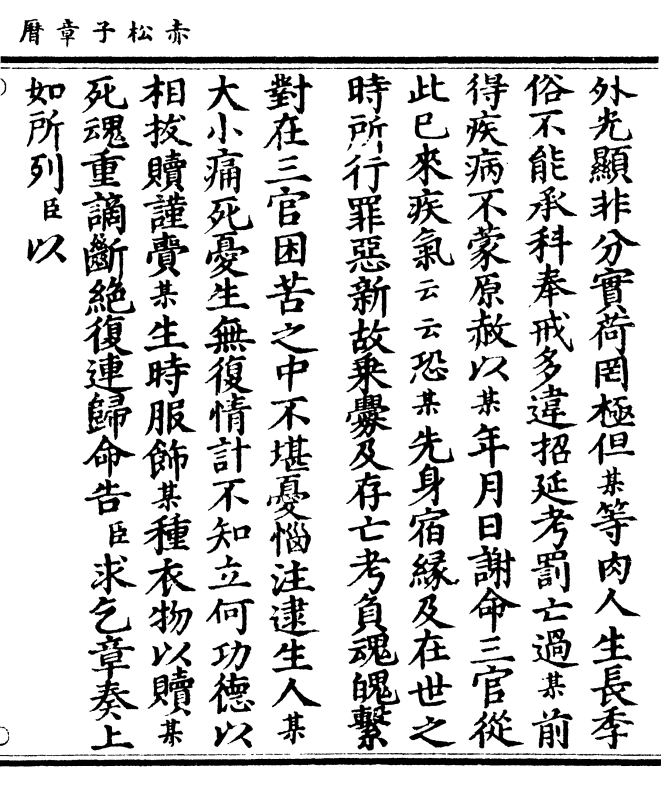 赤松子章曆
外光顯非分實荷罔極但某等肉人生長季
俗不能承科奉戒多違招延考罰亡過某前
得疾病不蒙原赦以某年月日謝命三官從
此已來疾氣云云恐某先身宿緣及在世之
時所行罪惡新故乘釁及存亡考負魂魄繫
對在三官困苦之中不堪憂惱注逮生人某
大小痛死憂生無復情計不知立何功德以
相拔贖謹賷某生時服飾某種衣物以贖某
死魂重謫斷絕復連歸命告臣求乞章奏上
如所列臣以